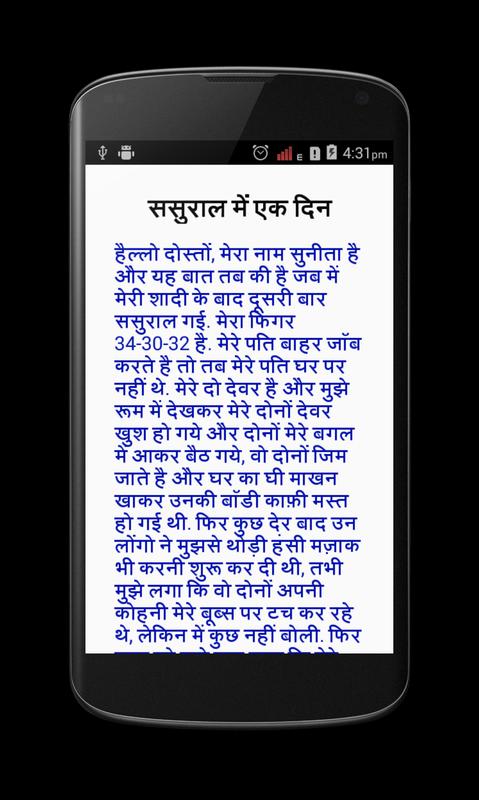 E 4:31pm
ससुराल में एक दिन
हैल्लो दोस्तों, मेरा नाम सुनीता है
और यह बात तब की है जब में
मेरी शादी के बाद दूसरी बार
ससुराल गई. मेरा फिगर
34-30-32 है. मेरे पति बाहर जॉब
करते है तो तब मेरे पति घर पर
नहीं थे. मेरे दो देवर है और मुझे
रूम में देखकर मेरे दोनों देवर
खुश हो गये और दोनों मेरे बगल
में आकर बैठ गये, वो दोनों जिम
जाते है और घर का घी माखन
खाकर उनकी बॉडी काफ़ी मस्त
हो गई थी. फिर कुछ देर बाद उन
लोंगो ने मुझसे थोड़ी हंसी मज़ाक
भी करनी शुरू कर दी थी, तभी
मुझे लगा कि वो दोनों अपनी
कोहनी मेरे बूब्स पर टच कर रहे
थे, लेकिन में कुछ नहीं बोली. फिर